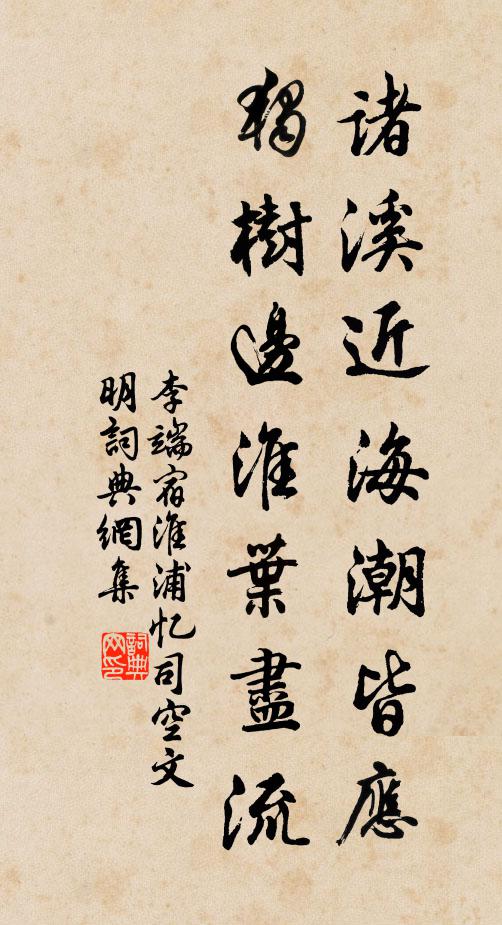 諸溪近海潮皆應
獨樹邊淮葉盡流
李端宿淮浦忆司空文
明詞典網集
詞典網印